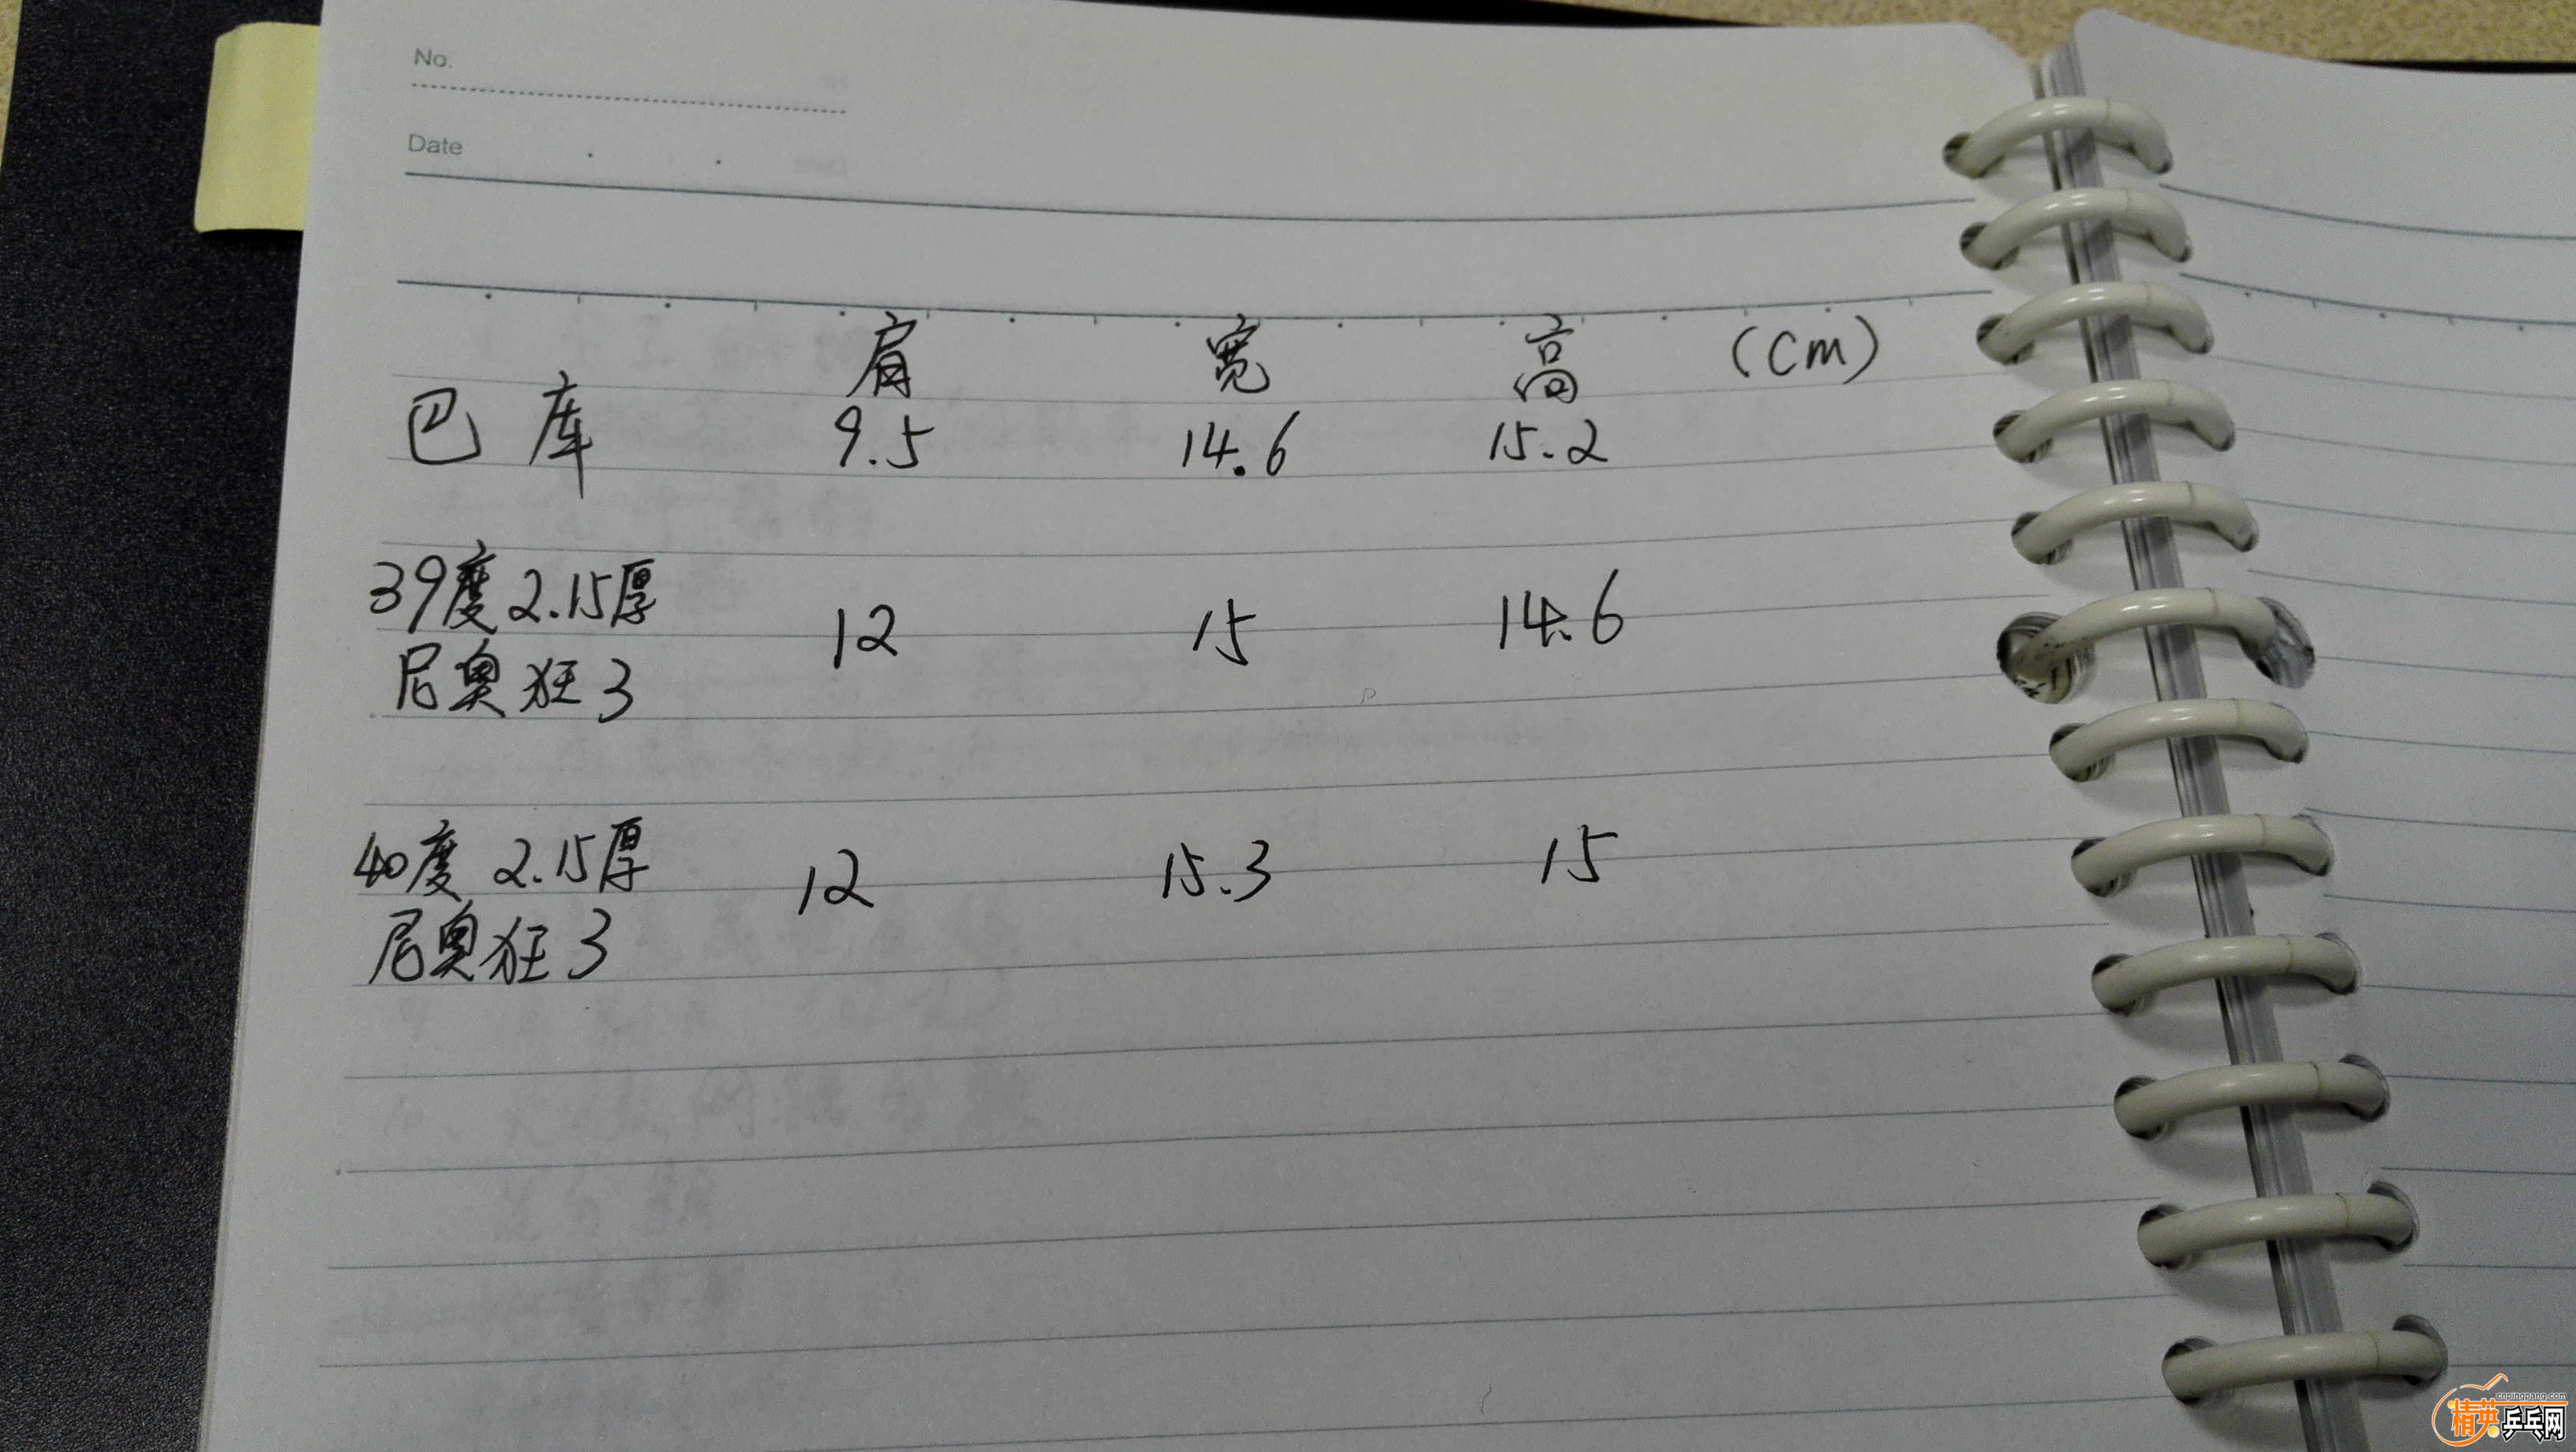 No.
Date
肩 宽 高 (cm)
巴库 9.5 14.6 15.2
39度 2.15厚
尼奥狂3 12 15 14.6
40度 2.15厚
尼奥狂3 12 15.3 15
cnpingpang.com
精英乒乓网